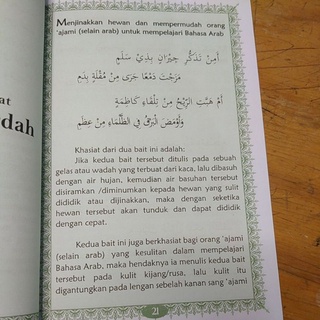 at
dah
Menjinakkan hewan dan mempermudah orang
'ajami (selain arab) untuk mempelajari Bahasa Arab
أَمِنْ تَذَكُّرِ جِيْرَانٍ بِذِيْ سَلَمٍ
مَزَجْتَ دَمْعًا جَرَى مِنْ مُقْلَةٍ بِدَمِ
أَمْ هَبَّتِ الرِّيْحُ مِنْ تِلْقَاءِ كَاظِمَةٍ
وَأَوْمَضَ الْبَرْقُ فِي الظَّلْمَاءِ مِنْ إِضَمِ
Khasiat dari dua bait ini adalah:
Jika kedua bait tersebut ditulis pada sebuah
gelas atau wadah yang terbuat dari kaca, lalu dibasuh
dengan air hujan, kemudian air basuhan tersebut
disiramkan /diminumkan kepada hewan yang sulit
dididik atau dijinakkan, maka dengan seketika
hewan tersebut akan tunduk dan dapat dididik
dengan cepat.
Kedua bait ini juga berkhasiat bagi orang 'ajami
(selain arab) yang kesulitan dalam mempelajari
Bahasa Arab, maka hendaknya ia menulis kedua bait
tersebut pada kulit kijang/rusa, lalu kulit itu
digantungkan pada lengan sebelah kanan sang 'ajami
21